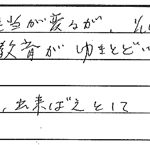 当が変なが、
教育がゆきとどい
、出来ばえとして